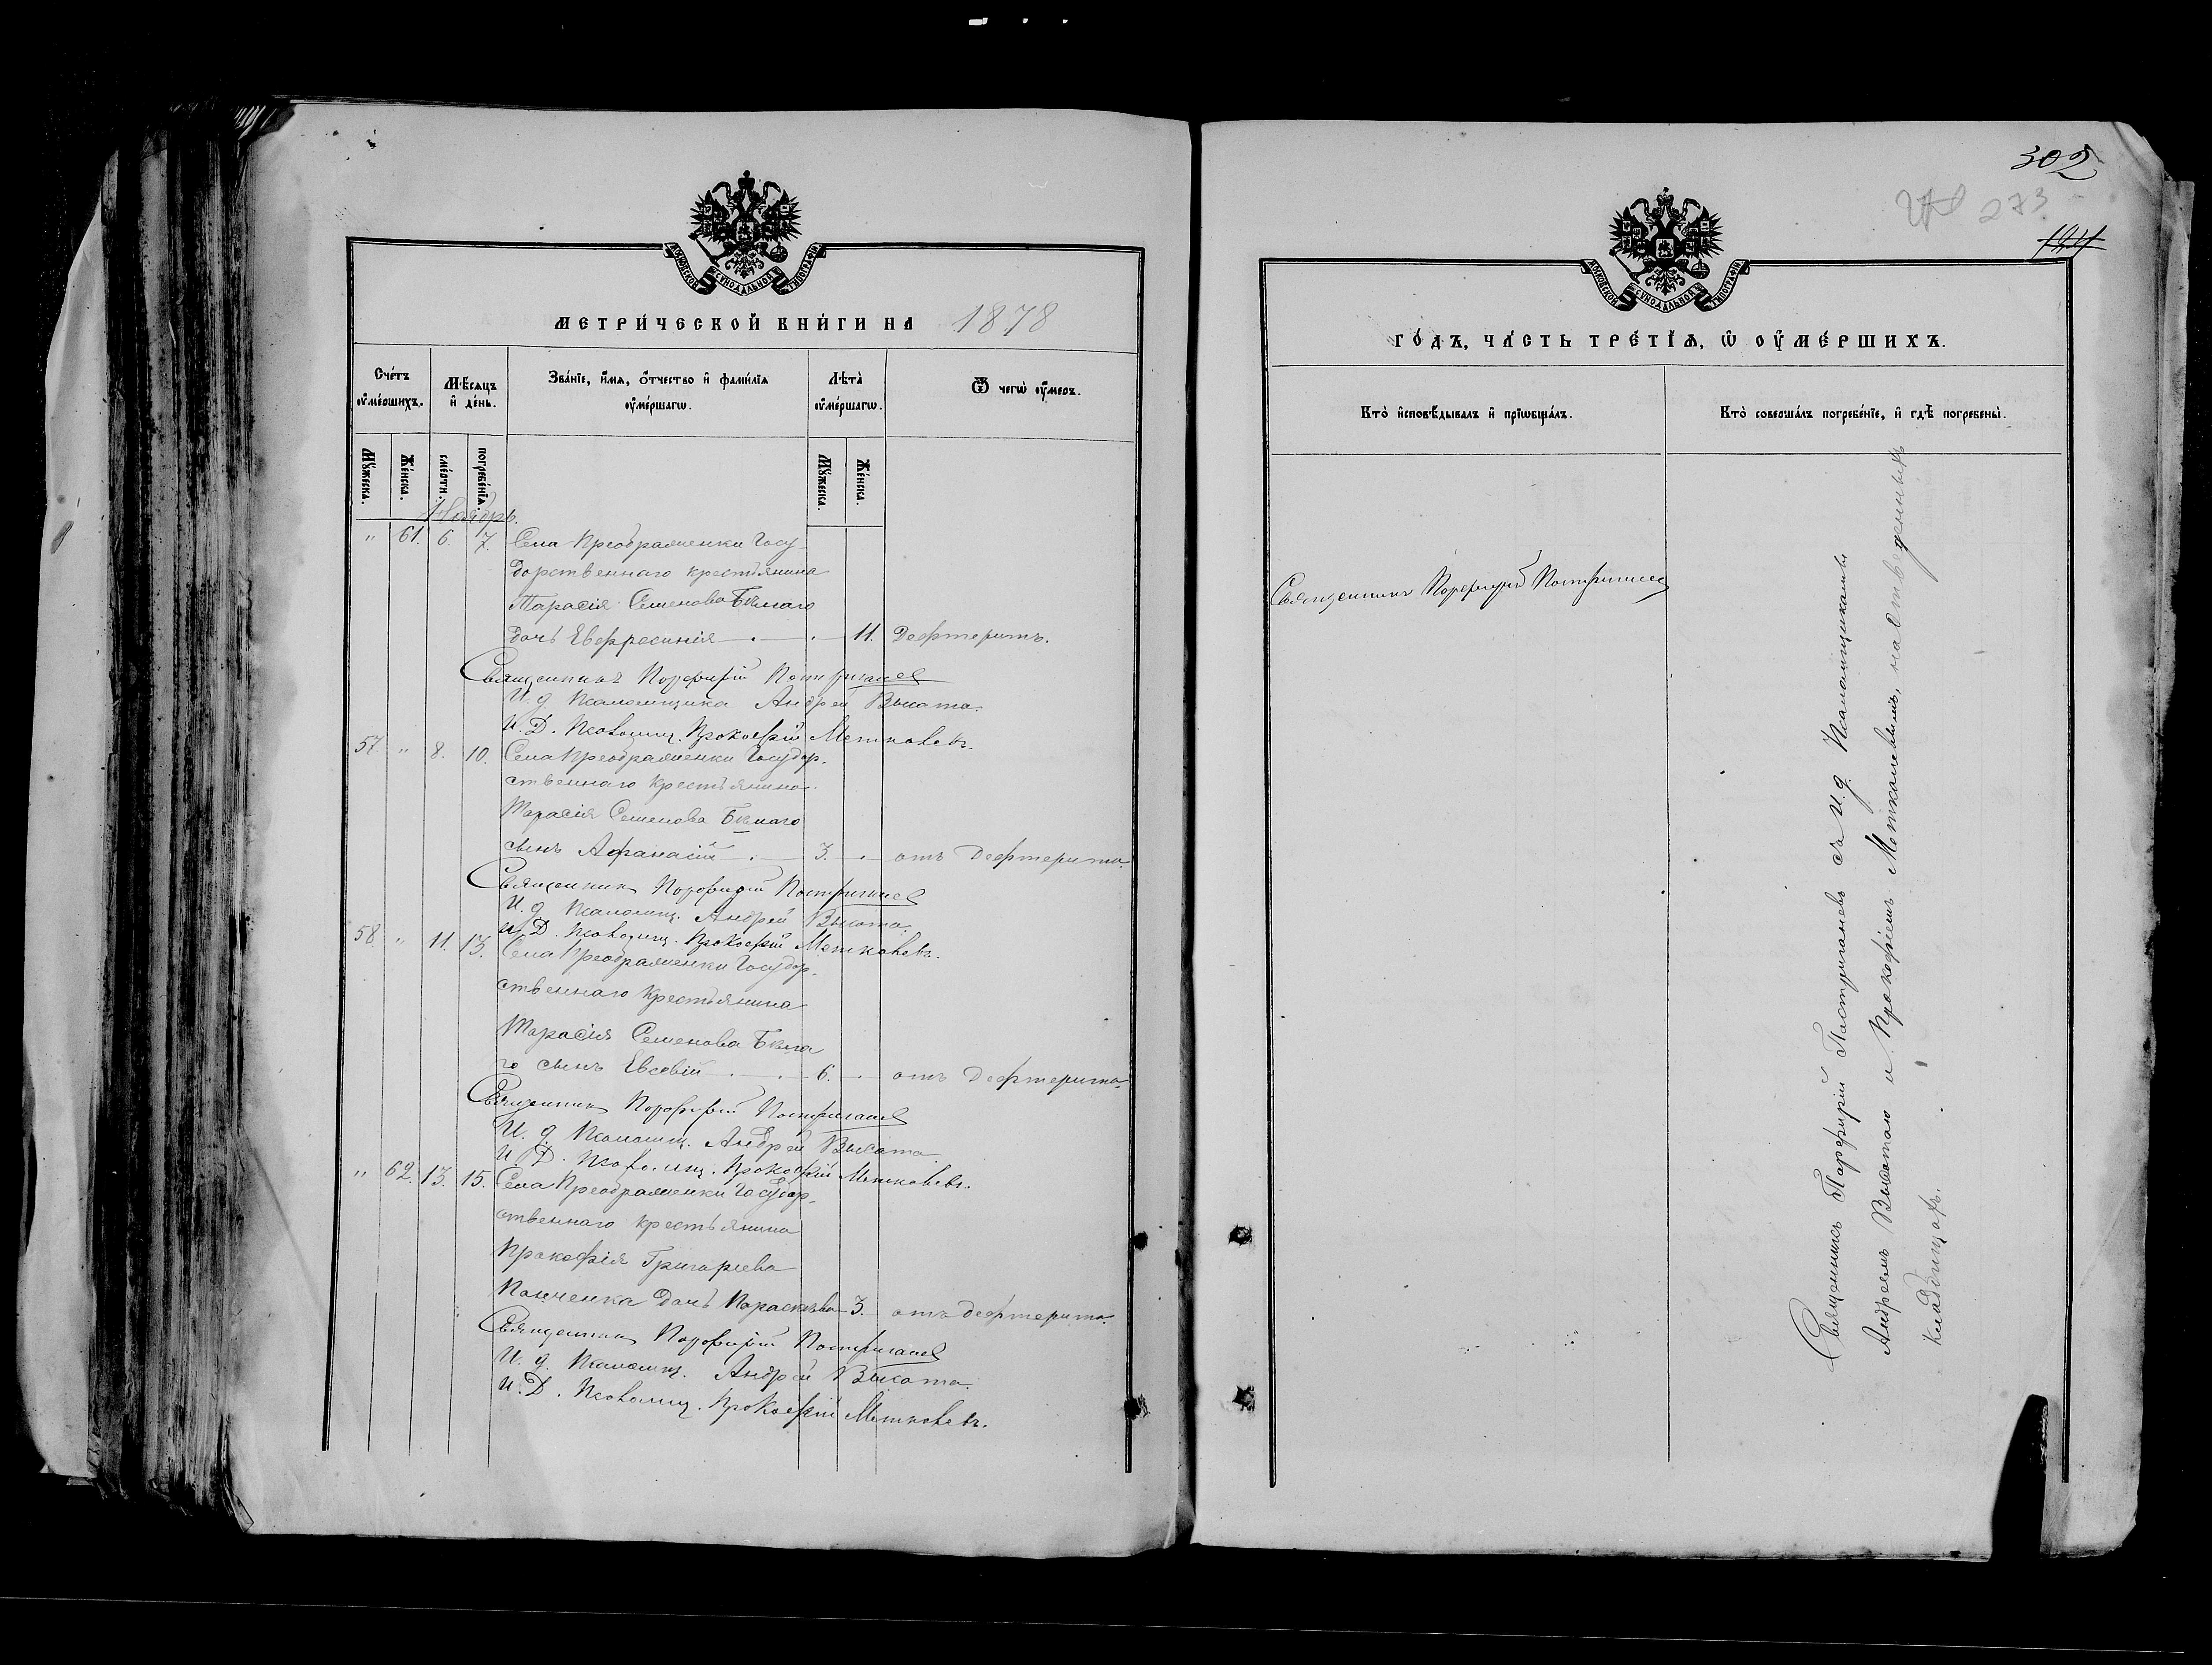 МОСКОВСКОЙ СѴНОДАЛЬНОЙ ТИПОГРАФІИ
МЕТРИ́ЧЕСКОЙ КНИ́ГИ НА 1878
Сче́тъ оу҆ме́ршихъ.
Мѣ́сяцъ и҆ де́нь.
Зва́нїе, и҆́мя, ѻ҆́тчество и҆ фами́лїя оу҆ме́ршагѡ.
Лѣ́та оу҆ме́ршагѡ.
Ѿ чегѡ̀ оу҆́меръ.
Мꙋ́жеска.
Же́нска.
сме́рти.
погребе́нїя.
Мꙋ́жеска.
Же́нска.
Ноябрь.
" 61. 6. 7. Села Преображенки Госу-
дарственнаго крестьянина
Тарасія Семенова Бѣлаго
дочь Евфросинія 11. Дефтеритъ.
Священникъ Порфирій Постригачев
И. д. Псаломщика Андрей Высота.
И. Д. Псаломщ. Прокофій Метковевъ.
57. " 8. 10. Села Преображенки Государ-
ственнаго крестьянина
Тарасія Семенова Бѣлаго
сынъ Афанасій 3. отъ Дефтерита.
Священник Порфирій Постригачев
И. д. Псаломщ. Андрей Высота.
И. Д. Псаломщ. Прокофій Метковевъ.
58. " 11. 13. Села Преображенки Государ-
ственнаго крестьянина
Тарасія Семенова Бѣла
го сынъ Евсевій 6. отъ Дефтерита.
Священник Порфирій Постригачев
И. д. Псаломщ. Андрей Высота.
И. Д. Псаломщ. Прокофій Метковевъ.
" 62. 13. 15. Села Преображенки Государ-
ственнаго крестьянина
Прокофія Григорьева
Панченка дочь Параскева 3. отъ дефтерита.
Священник Порфирій Постригачев
И. д. Псаломщ. Андрей Высота.
И. Д. Псаломщ. Прокофій Метковевъ.
302
273
МОСКОВСКОЙ СѴНОДАЛЬНОЙ ТИПОГРАФІИ
ГО́ДЪ, ЧА́СТЬ ТРЕ́ТІѦ, Ѡ҆ ОУ҆МЕ́РШИХЪ.
Кто̀ и҆сповѣ́дывалъ и҆ прїѡбща́лъ.
Кто̀ соверша́лъ погребе́нїе, и҆ гдѣ̀ погребены̀.
Священникъ Порфирій Постригачев
Священникъ Порфирій Постригачевъ съ И. д. Псаломщиками
Андреемъ Высотою и Прокофіемъ Метковевымъ, на
кладбищахъ.